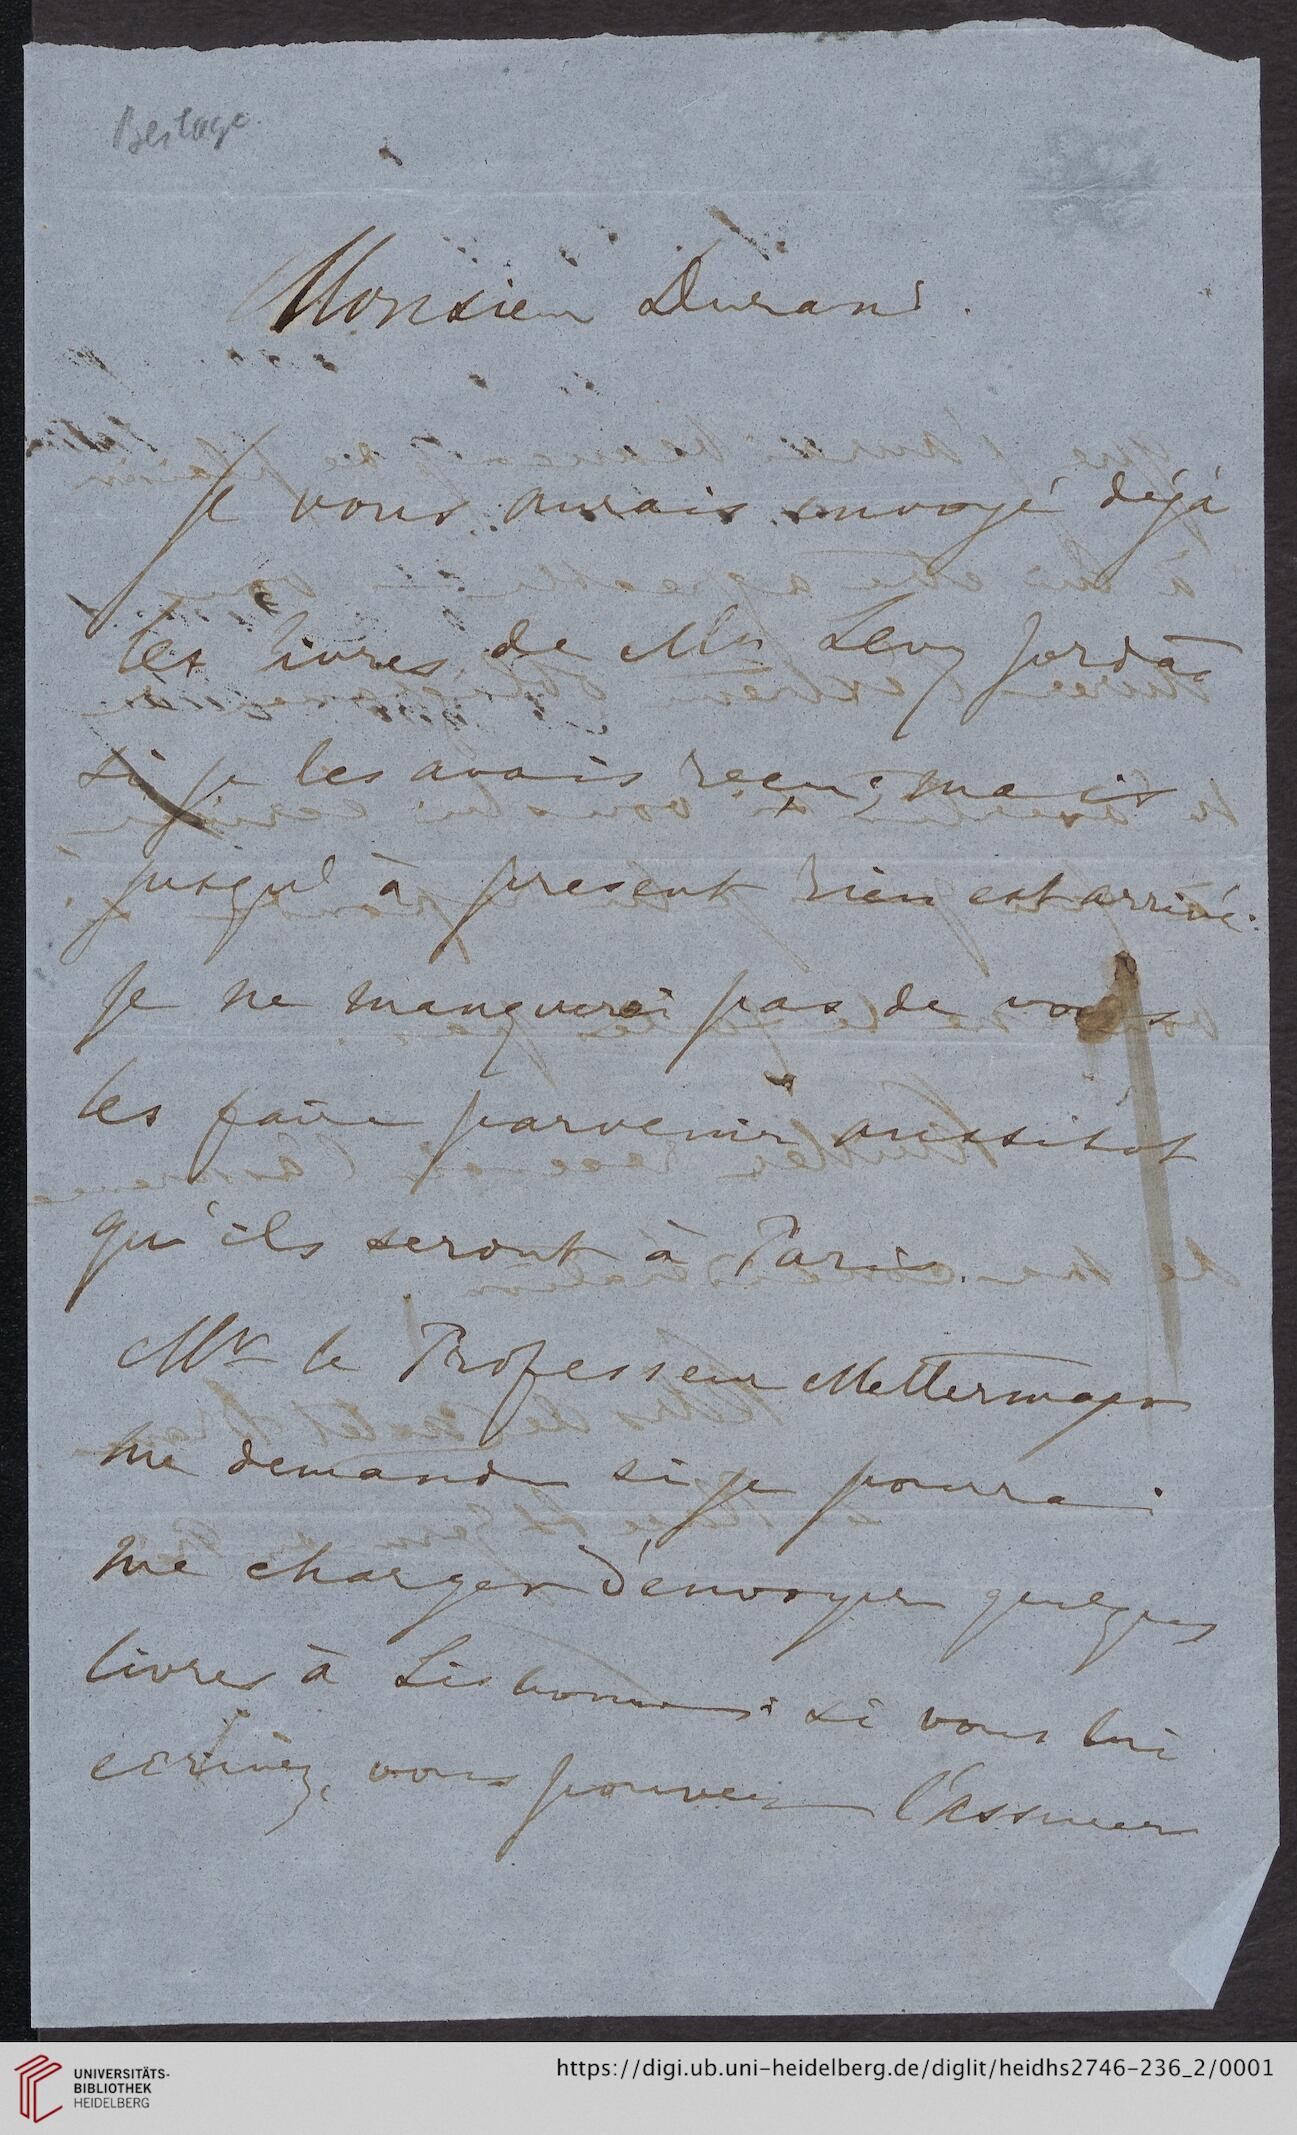 Beilage.
Monsieur Durand.
Je vous aurais envoyé déjà
les livres de Mr Levy Jordão
si je les avais reçu; mais
jusqu' à present rien est arrivé.
Je ne manquerai pas de vous
les faire parvenir aussitot
qu'ils seront à Paris.
Mr le Professeur Mettermayer
me demande si je pourrai
me charger d'envoyer quelques
livres à Lisbonne: si vous lui
ecrivez, vous pouvez l'assurer
UNIVERSITÄTS-
BIBLIOTHEK
HEIDELBERG
https://digi.ub.uni-heidelberg.de/diglit/heidhs2746-236_2/0001